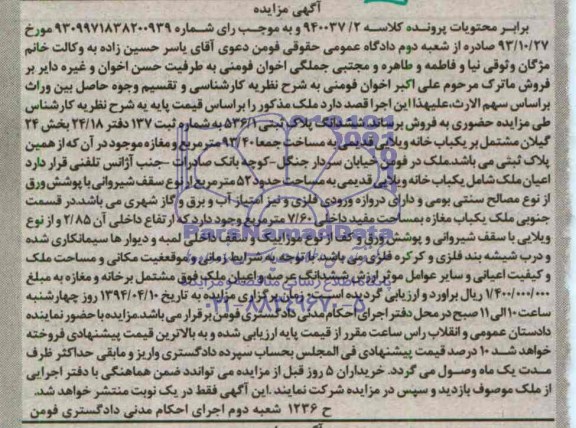 آگهی مزایده
برابر محتویات پرونده کلاسه ۲/ ۹۴۰۰۳۷ و به موجب رای شماره ۹۳۰۹۹۷۱۸۳۸۲۰۰۹۳۹ مورخ
۹۳/۱۰/۲۷ صادره از شعبه دوم دادگاه عمومی حقوقی فومن دعوی آقای یاسر حسین زاده به وکالت خانم
مژگان وثوقی نیا و فاطمه و طاهره و مجتبی جملگی اخوان فومنی به طرفیت حسن اخوان و غیره دایر بر
فروش ماترک مرحوم علی اکبر اخوان فومنی به شرح نظریه کارشناسی و تقسیم وجوه حاصل بین وراث
براساس سهم الارث،علیهذا این اجرا قصد دارد ملک مذکور را براساس قیمت پایه به شرح نظریه کارشناس
طی مزایده حضوری به فروش برساند.ششدانگ پلاک ثبتی ۵۳۶/۱ به شماره ثبت ۱۳۷ دفتر ۲۴/۱۸ بخش ۲۴
گیلان مشتمل بر یکباب خانه ویلایی قدیمی به مساحت جمعا ۹۳/۴۰ مترمربع و مغازه موجود در آن که از همین
پلاک ثبتی می باشد.ملک در فومن خیابان سردار جنگل-کوچه بانک صادرات -جنب آژانس تلفنی قرار دارد
اعیان ملک شامل یکباب خانه ویلایی قدیمی به مساحت حدود ۵۲ مترمربع از نوع سقف شیروانی با پوشش ورق
از نوع مصالح سنتی بومی و دارای دروازه ورودی فلزی و نیز امتیاز آب و برق و گاز شهری می باشد.در قسمت
جنوبی ملک یکباب مغازه بمساحت مفید داخلی ۷/۶۰ مترمربع وجود دارد که ارتفاع داخلی آن ۲/۸۵ و از نوع
ویلایی با سقف شیروانی و پوشش ورق و کف از نوع موزائیک و سقف داخلی لمبه و دیوار ها سیمانکاری شده
و درب شیشه بند فلزی و کرکره فلزی می باشد.با توجه به شرایط زمانی و موقعیت مکانی و مساحت ملک
و کیفیت اعیانی و سایر عوامل موثر ارزش ششدانگ عرصه و اعیان ملک فوق مشتمل برخانه و مغازه به مبلغ
۱/۴۰۰/۰۰۰/۰۰۰ ریال براورد و ارزیابی گردیده است. زمان برگزاری مزایده به تاریخ ۱۳۹۴/۰۴/۱۰ روز چهارشنبه
ساعت ۱۰ الی ۱۱ صبح در محل دفتر اجرای احکام مدنی دادگستری فومن برقرار می باشد.مزایده با حضور نماینده
دادستان عمومی و انقلاب راس ساعت مقرر از قیمت پایه ارزیابی شده و به بالاترین قیمت پیشنهادی فروخته
خواهد شد ۱۰ درصد قیمت پیشنهادی فی المجلس بحساب سپرده دادگستری واریز و مابقی حداکثر ظرف
مدت یک ماه وصول می گردد. خریداران ۵ روز قبل از مزایده می تواندد ضمن هماهنگی با دفتر اجرایی
از ملک موصوف بازدید و سپس در مزایده شرکت نمایند .این آگهی فقط در یک نوبت منتشر خواهد شد.
ح ۱۲۳۶ شعبه دوم اجرای احکام مدنی دادگستری فومن
ParsNamadData